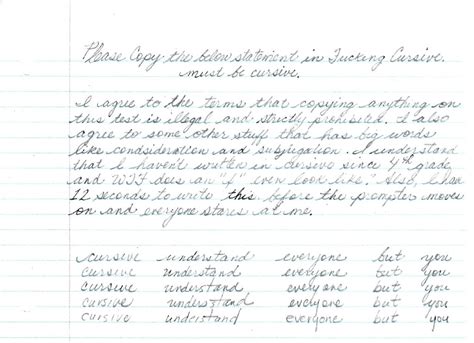 Please Copy the below statement in Fucking Cursive.
must be cursive.
I agree to the terms that copying anything on
this test is illegal and strictly prohibited. I also
agree to some other stuff that has big words
like condsideration and subjugation. I understand
that I haven't written in cursive since 4th grade,
and WTF does an "f" even look like? Also, I have
12 seconds to write this before the prompter moves
on and everyone stares at me.
cursive understand everyone but you
cursive understand everyone but you
cursive understand everyone but you
cursive understand everyone but you
cursive understand everyone but you